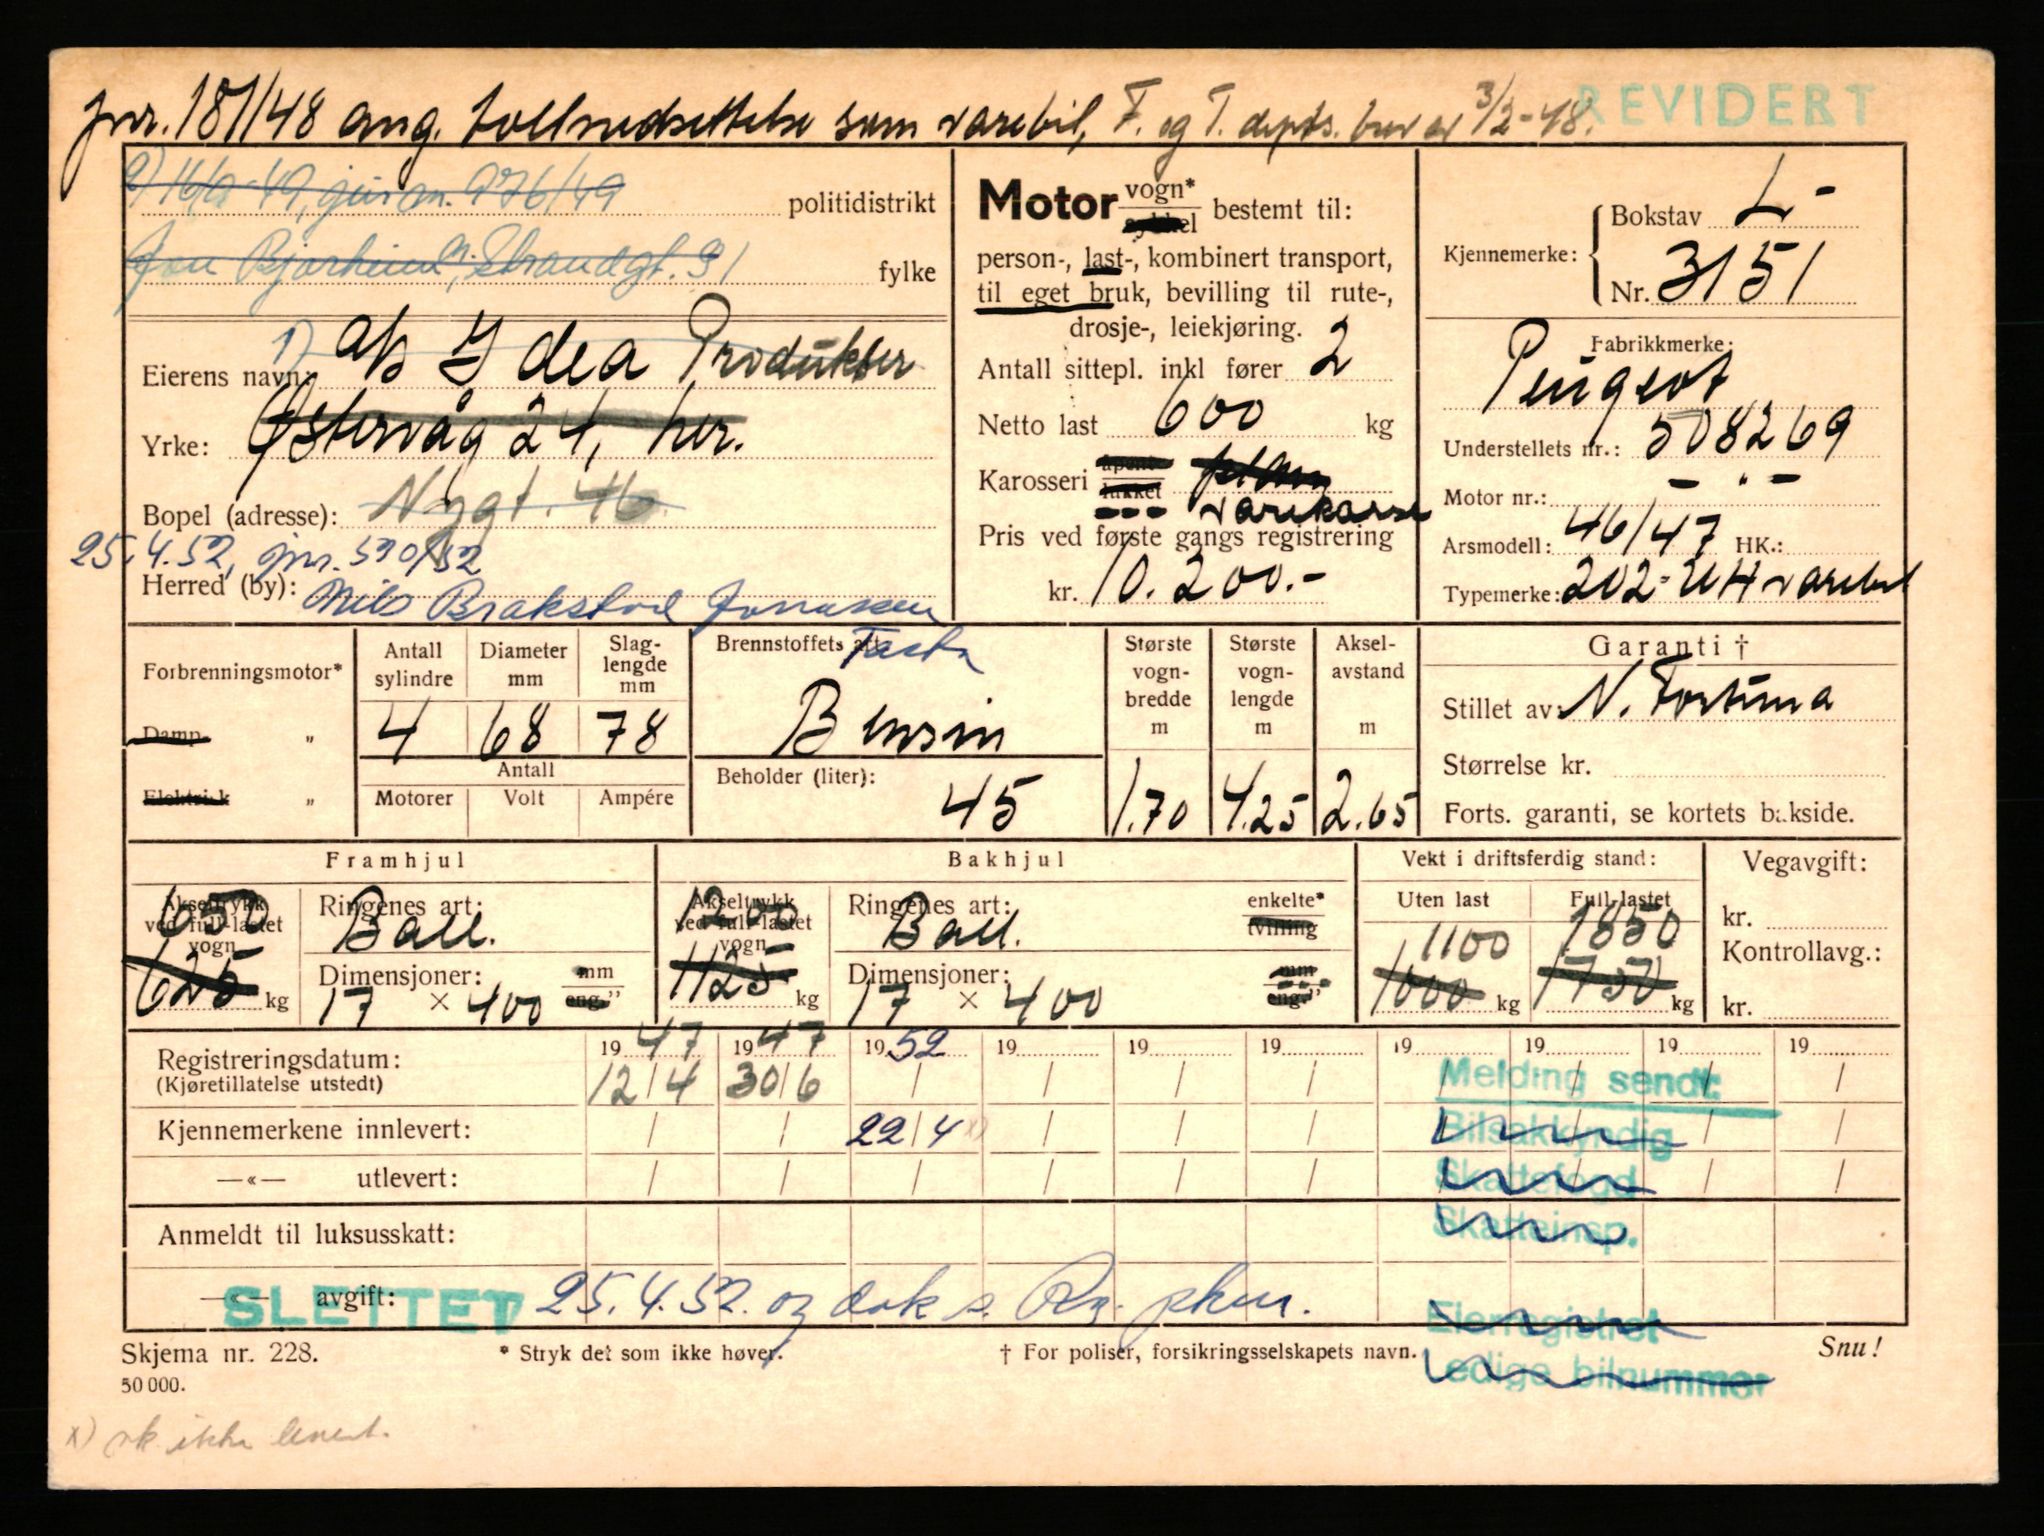 jnr. 181/48 ang. tollnedsettelse som varebil, F. og T. depts. brev av 3/2-48.
REVIDERT
2) 16/9-49, jnr. 976/49
politidistrikt
Jon Bjorheim, Strandgt. 31
fylke
1)
Eierens navn: A/S Idea Produkter
Yrke: Østervåg 24, her.
Bopel (adresse): Nygt. 46
25.4.52, jnr. 590/52
Herred (by): Nils Brakstad Jonassen
Tasta
Motor vogn* sykkel bestemt til:
person-, last-, kombinert transport,
til eget bruk, bevilling til rute-,
drosje-, leiekjøring.
Antall sittepl. inkl fører 2
Netto last 600 kg
Karosseri åpent lukket plan
varekasse
Pris ved første gangs registrering
kr. 10.200.-
Kjennemerke: Bokstav L-
Nr. 3151
Fabrikkmerke:
Peugeot
Understellets nr.: 508269
Motor nr.: - " -
Årsmodell: 46/47 HK.:
Typemerke: 202-UH varebil
Forbrenningsmotor*
Damp- "
Elektrisk "
Antall sylindre
Diameter mm
Slag-lengde mm
4 68 78
Antall
Motorer Volt Ampére
Brennstoffets art:
Bensin
Beholder (liter):
45
Største vogn-bredde m
1.70
Største vogn-lengde m
4.25
Aksel-avstand m
2.65
Garanti †
Stillet av: N. Fortuna
Størrelse kr.
Forts. garanti, se kortets bakside.
Framhjul
Akseltrykk ved full-lastet vogn
650
625 kg
Ringenes art:
Ball.
Dimensjoner: mm eng."
17 × 400
Bakhjul
Akseltrykk ved full-lastet vogn
1200
1125 kg
Ringenes art: enkelte* tvilling
Ball.
Dimensjoner: mm eng."
17 × 400
Vekt i driftsferdig stand:
Uten last Full-lastet
1100 1850
1000 kg 1750 kg
Vegavgift:
kr.
Kontrollavg.:
kr.
Registreringsdatum: 1947 1947 1952 19 19 19 19 19 19 19
(Kjøretillatelse utstedt) 12/4 30/6 / / / / / / / /
Kjennemerkene innlevert: / / 22/4 x) / / / / / / /
—«— utlevert: / / / / / / / / / /
Anmeldt til luksusskatt:
—«— avgift:
SLETTET 25.4.52. og
Melding sendt:
Bilsakkyndig
Skattefogd
Skatteinsp.
Eierregistret
Ledige bilnummer
Skjema nr. 228.
* Stryk det som ikke høver.
† For poliser, forsikringsselskapets navn.
Snu!
50 000.
x) vk. ikke levert.